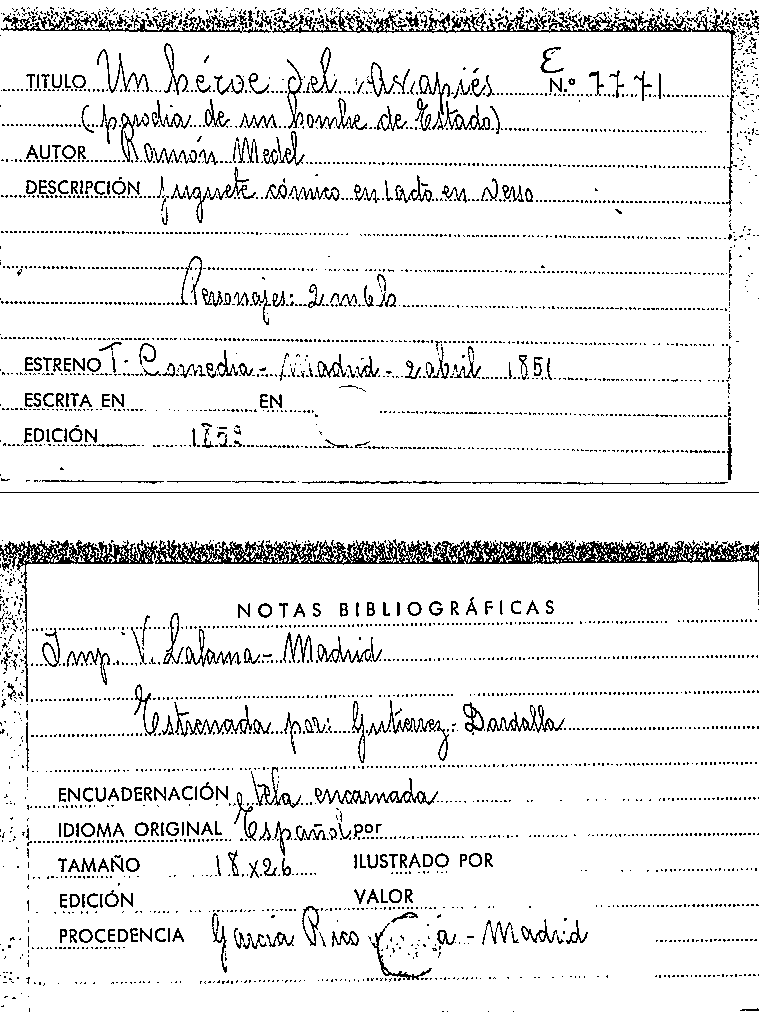 E
TITULO Un héroe del Avapiés N.º 7771
(parodia de un hombre de Estado)
AUTOR Ramón Medel
DESCRIPCIÓN Juguete cómico en 1 acto en verso
Personajes: 2 m 6 h
ESTRENO T. Comedia - Madrid - 2 abril 1851
ESCRITA EN EN
EDICIÓN
NOTAS BIBLIOGRÁFICAS
Imp. V. Lalama - Madrid
Estrenada por: Gutierrez - Dardalla
ENCUADERNACIÓN tela encarnada
IDIOMA ORIGINAL Español por
TAMAÑO 18 x 26 ILUSTRADO POR
EDICIÓN VALOR
PROCEDENCIA García Rico y - Madrid